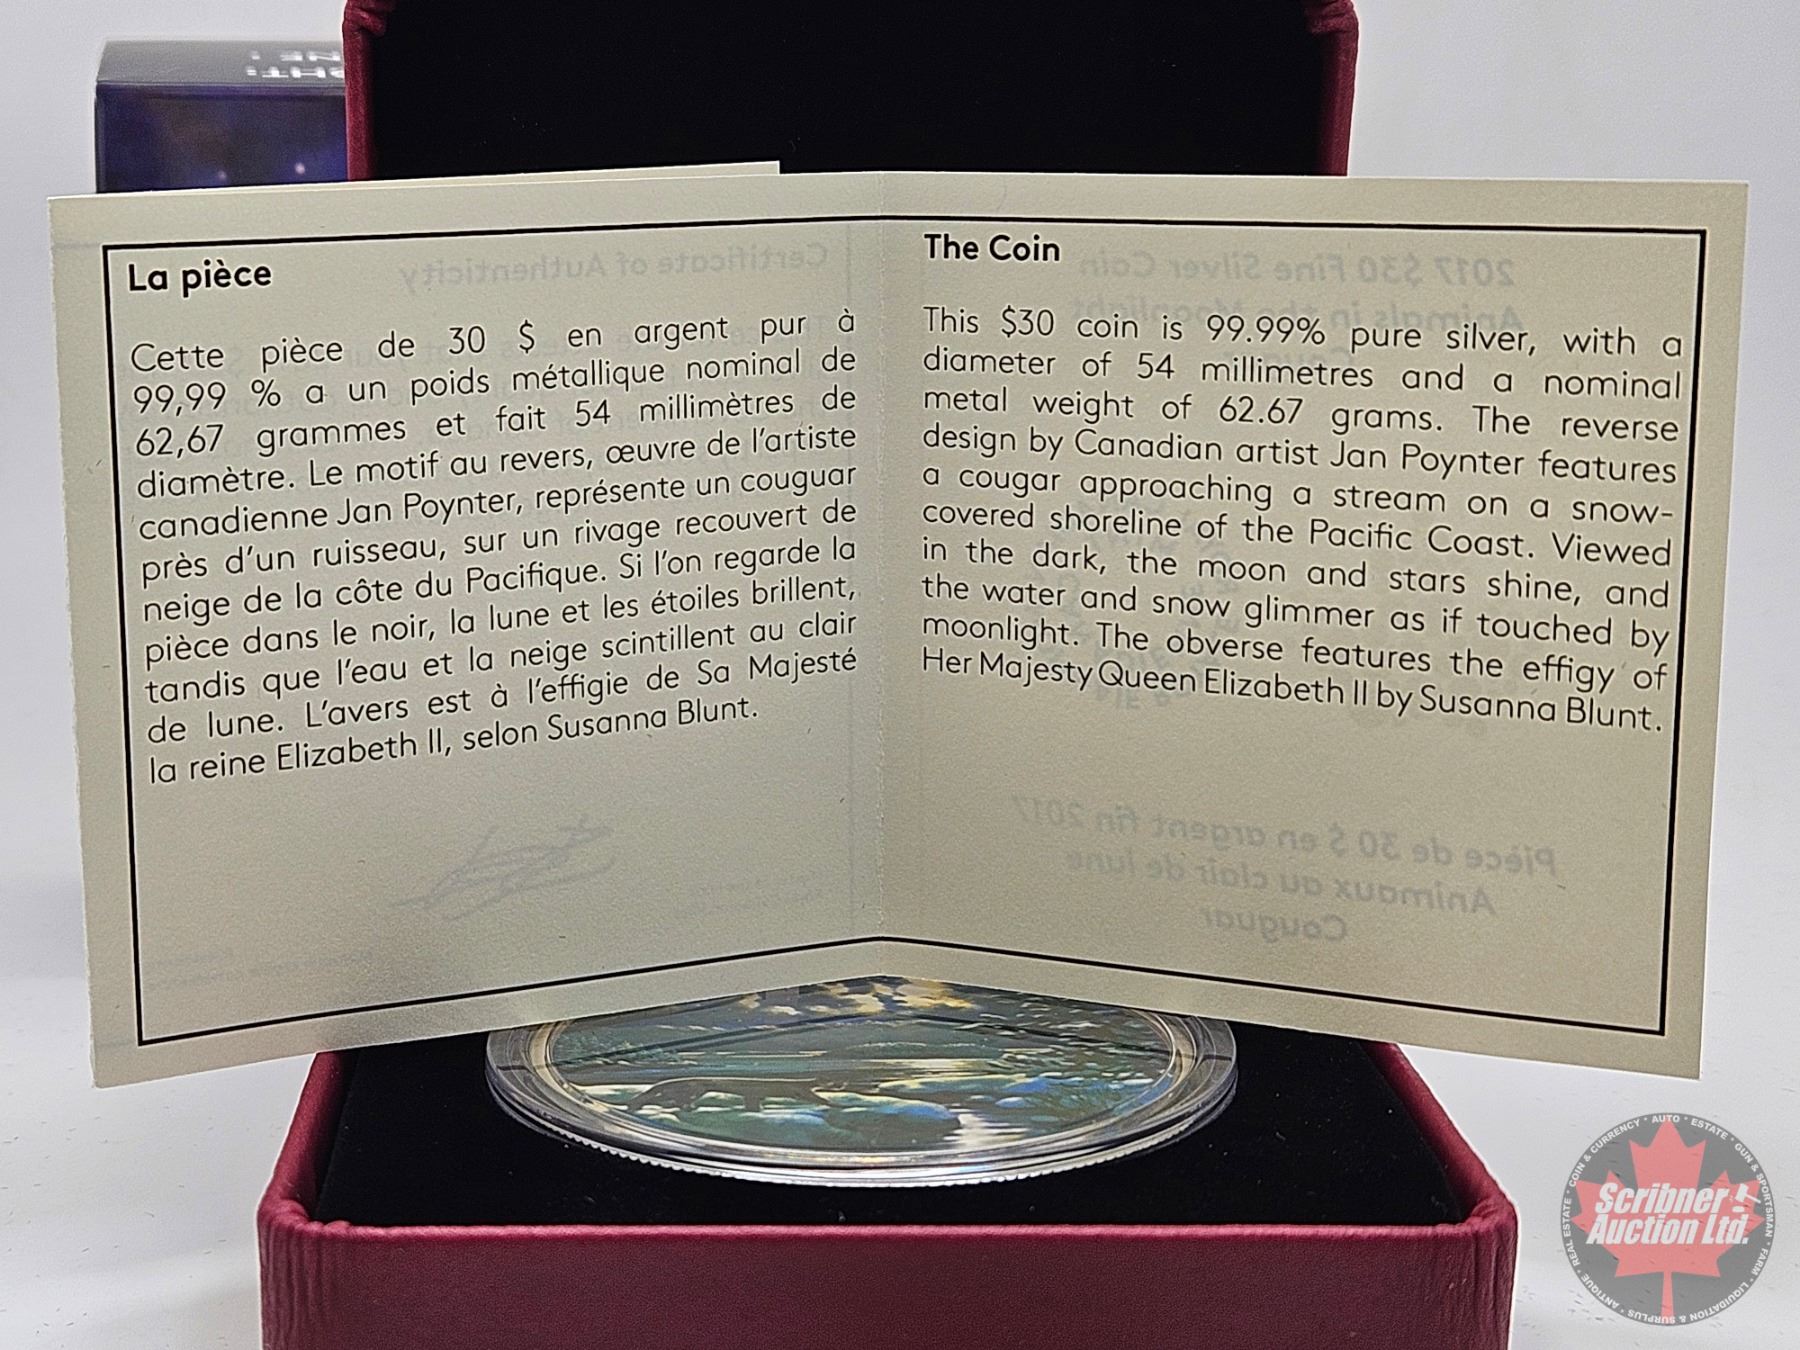 La pièce
Cette pièce de 30 $ en argent pur à
99,99 % a un poids métallique nominal de
62,67 grammes et fait 54 millimètres de
diamètre. Le motif au revers, œuvre de l'artiste
canadienne Jan Poynter, représente un couguar
près d'un ruisseau, sur un rivage recouvert de
neige de la côte du Pacifique. Si l'on regarde la
pièce dans le noir, la lune et les étoiles brillent,
tandis que l'eau et la neige scintillent au clair
de lune. L'avers est à l'effigie de Sa Majesté
la reine Elizabeth II, selon Susanna Blunt.
The Coin
This $30 coin is 99.99% pure silver, with a
diameter of 54 millimetres and a nominal
metal weight of 62.67 grams. The reverse
design by Canadian artist Jan Poynter features
a cougar approaching a stream on a snow-
covered shoreline of the Pacific Coast. Viewed
in the dark, the moon and stars shine, and
the water and snow glimmer as if touched by
moonlight. The obverse features the effigy of
Her Majesty Queen Elizabeth II by Susanna Blunt.
Certificate of Authenticity
2017 $30 Fine Silver Coin
Animals in the Moonlight
Cougar
Pièce de 30 $ en argent fin 2017
Animaux au clair de lune
Couguar
Scribner
Auction Ltd.
REAL ESTATE • COIN & CURRENCY • AUTO • ESTATE • GUN & SPORTSMAN • FARM • LIQUIDATION & SURPLUS • ANTIQUE